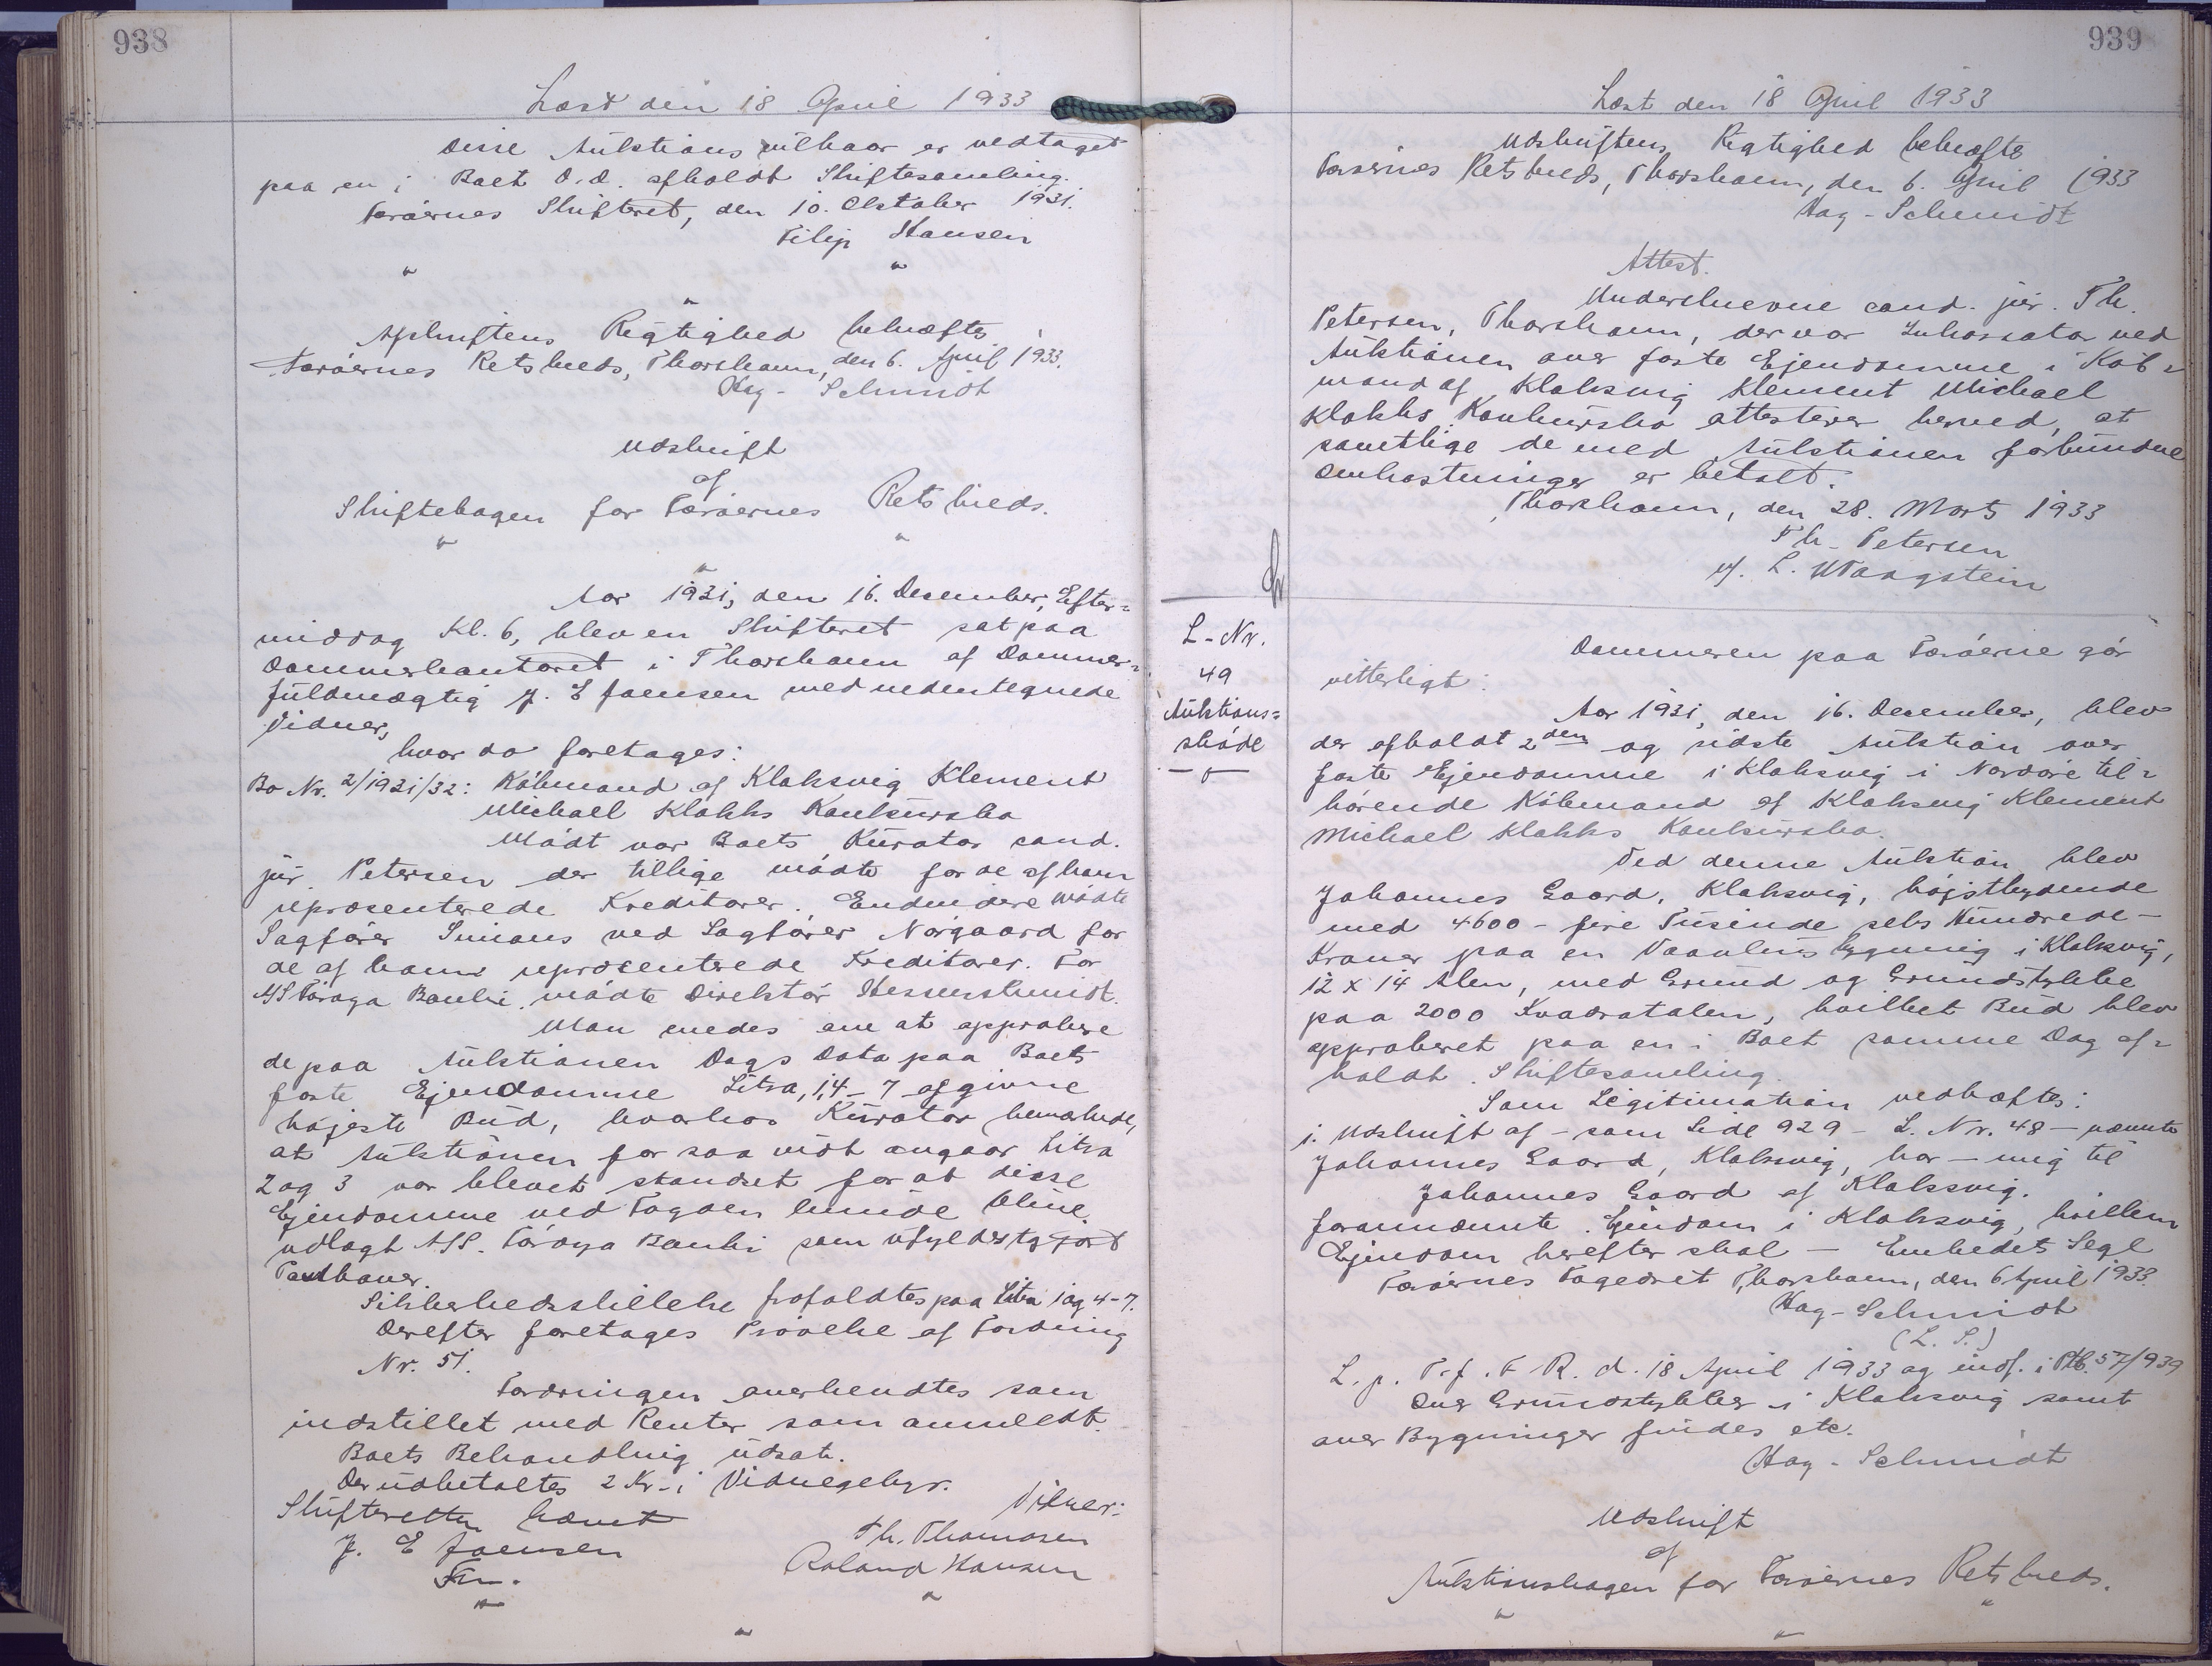 938
Læst den 18 April 1933
Disse Auktionsvilkaar er vedtaget
paa en i Boet D.D. afholdt Skiftesamling.
Færøernes Skifteret, den 10. Oktober 1931.
Filip Hansen
" "
"
Afskriftens Rigtighed bekræftes
Færøernes Retskreds, Thorshavn, den 6. April 1933.
Hag-Schmidt
Udskrift
af
Skiftebogen for Færøernes Retskreds.
" "
"
Aar 1931, den 16. December, Efter=
middag Kl. 6, blev en Skifteret sat paa
Dommerkontoret i Thorshavn af Dommer=
fuldmægtig J. E Joensen med nedentegnede
Vidner,
hvor da foretages:
Bo Nr. 2/1931/32: Købmand af Klaksvig Klement
Michael Klakks Konkursbo
Mødt var Boets Kurator cand.
jur. Petersen der tillige mødte for de af ham
repræsenterede Kreditorer. Endvidere mødte
Sagfører Smians ved Sagfører Nørgaard for
de af ham repræsenterede Kreditorer. For
A/S Føroya Banki mødte Direktør Kesserschmidt.
Man enedes om at approbere
de paa Auktionen Dags Dato paa Boets
faste Ejendomme Litra, 1,4-7 afgivne
højeste Bud, hvorhos Kurator bemærkede,
at Auktionen for saa vidt angaar Litra
2 og 3 var blevet standset for at disse
Ejendomme ved Fogden kunde blive
udlagt A/S. Føroya Banki som ufyldestgjort
Panthaver.
Sikkerhedsstillelse frafaldtes paa Litra 1 og 4-7.
Derefter foretages Prøvelse af Fordring
Nr. 51.
Fordringen anerkendtes som
indstillet med Renter som anmeldt.
Boets Behandling udsat.
Der udbetaltes 2 Kr. i Vidnegebyr.
Skifteretten hævet
Vidner:
J. E Joensen
Th. Thomasen
Fm.
Roland Hansen
" "
"
939
Læst den 18 April 1933
Udskriftens Rigtighed bekræftes
Færøernes Retskreds, Thorshavn, den 6. April 1933
Hag-Schmidt
Attest.
Underskrevne cand. jur. Th.
Petersen, Thorshavn, der var Inkassator ved
Auktionen over faste Ejendomme i Køb=
mand af Klaksvig Klement Michael
Klakks Konkursbo attesterer herved, at
samtlige de med Auktionen forbundne
Omkostninger er betalt.
Thorshavn, den 28. Marts 1933
Th. Petersen
e/. L. Waagstein
L-Nr.
49
Auktions=
skøde
Dommeren paa Færøerne gør
vitterligt:
Aar 1931, den 16. December, blev
der afholdt 2den og sidste Auktion over
faste Ejendomme i Klaksvig i Norderø til=
hørende Købmand af Klaksvig Klement
Michael Klakks Konkursbo.
Ved denne Auktion blev
Johannes Gaard, Klaksvig, højstbydende
med 4600 - fire Tusinde seks Hundrede -
Kroner paa en Vaaningsbygning i Klaksvig,
12 x 14 Alen, med Grund og Grundstykke
paa 2000 Kvadratalen, hvilket Bud blev
approberet paa en i Boet samme Dag af=
holdt Skiftesamling.
Som Legitimation vedhæftes:
1. Udskrift af - som Side 929 - L. Nr. 48 - nævnte
Johannes Gaard, Klaksvig, har - mig til
Johannes Gaard af Klaksvig.
forannævnte Ejendom i Klaksvig, hvilken
Ejendom herefter skal - Embedets Segl
Færøernes Fogedret Thorshavn, den 6 April 1933.
Hag-Schmidt
(L. S.)
L. p. T. f. F R. d. 18 April 1933 og indf. i Ptb. 57/939
Over Grundstykker i Klaksvig samt
over Bygninger findes etc.
Hag-Schmidt
Udskrift
af
Auktionsbogen for Færøernes Retskreds.
" "
"